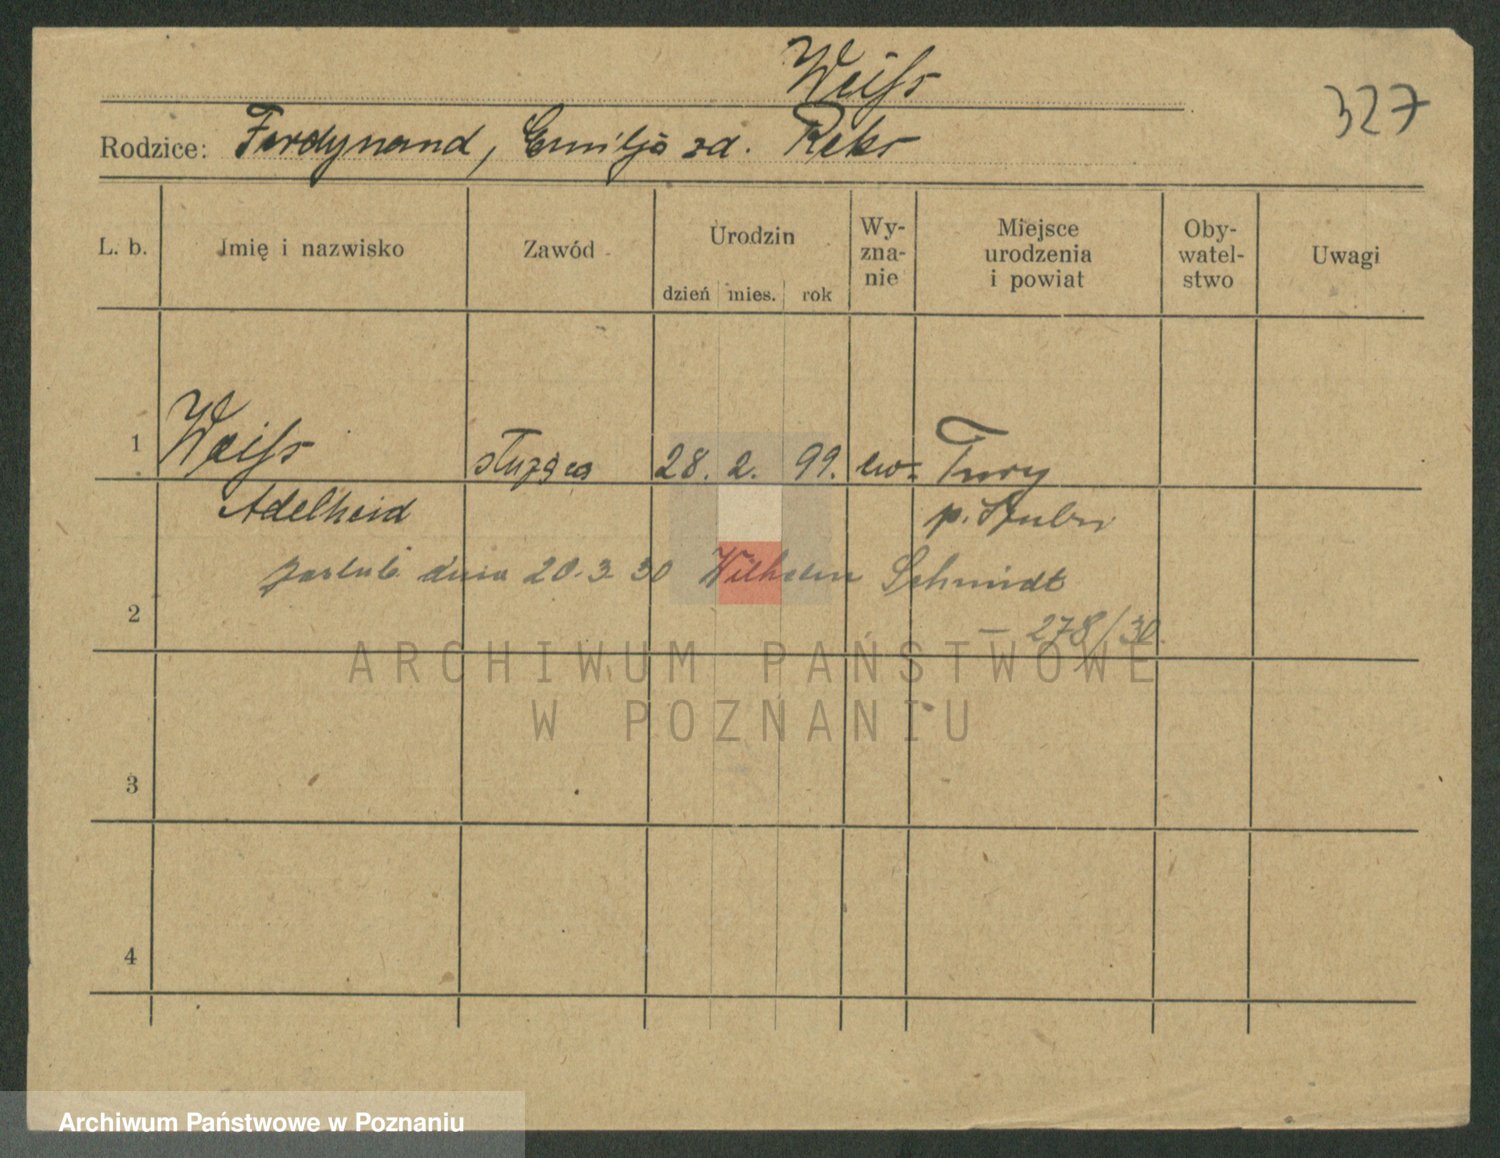 Weiſs
327
Rodzice: Ferdynand, Emilja zd.
L. b. Imię i nazwisko Zawód Urodzin dzień mies. rok Wy-zna-nie Miejsce urodzenia i powiat Oby-watel-stwo Uwagi
1 Weiſs służąca 28. 2. 99. ew. Tury
Adelheid p.
dnia 20.3.30 Wilhelm Schmidt
2
— 278/30.
ARCHIWUM PAŃSTWOWE
W POZNANIU
3
4
Archiwum Państwowe w Poznaniu